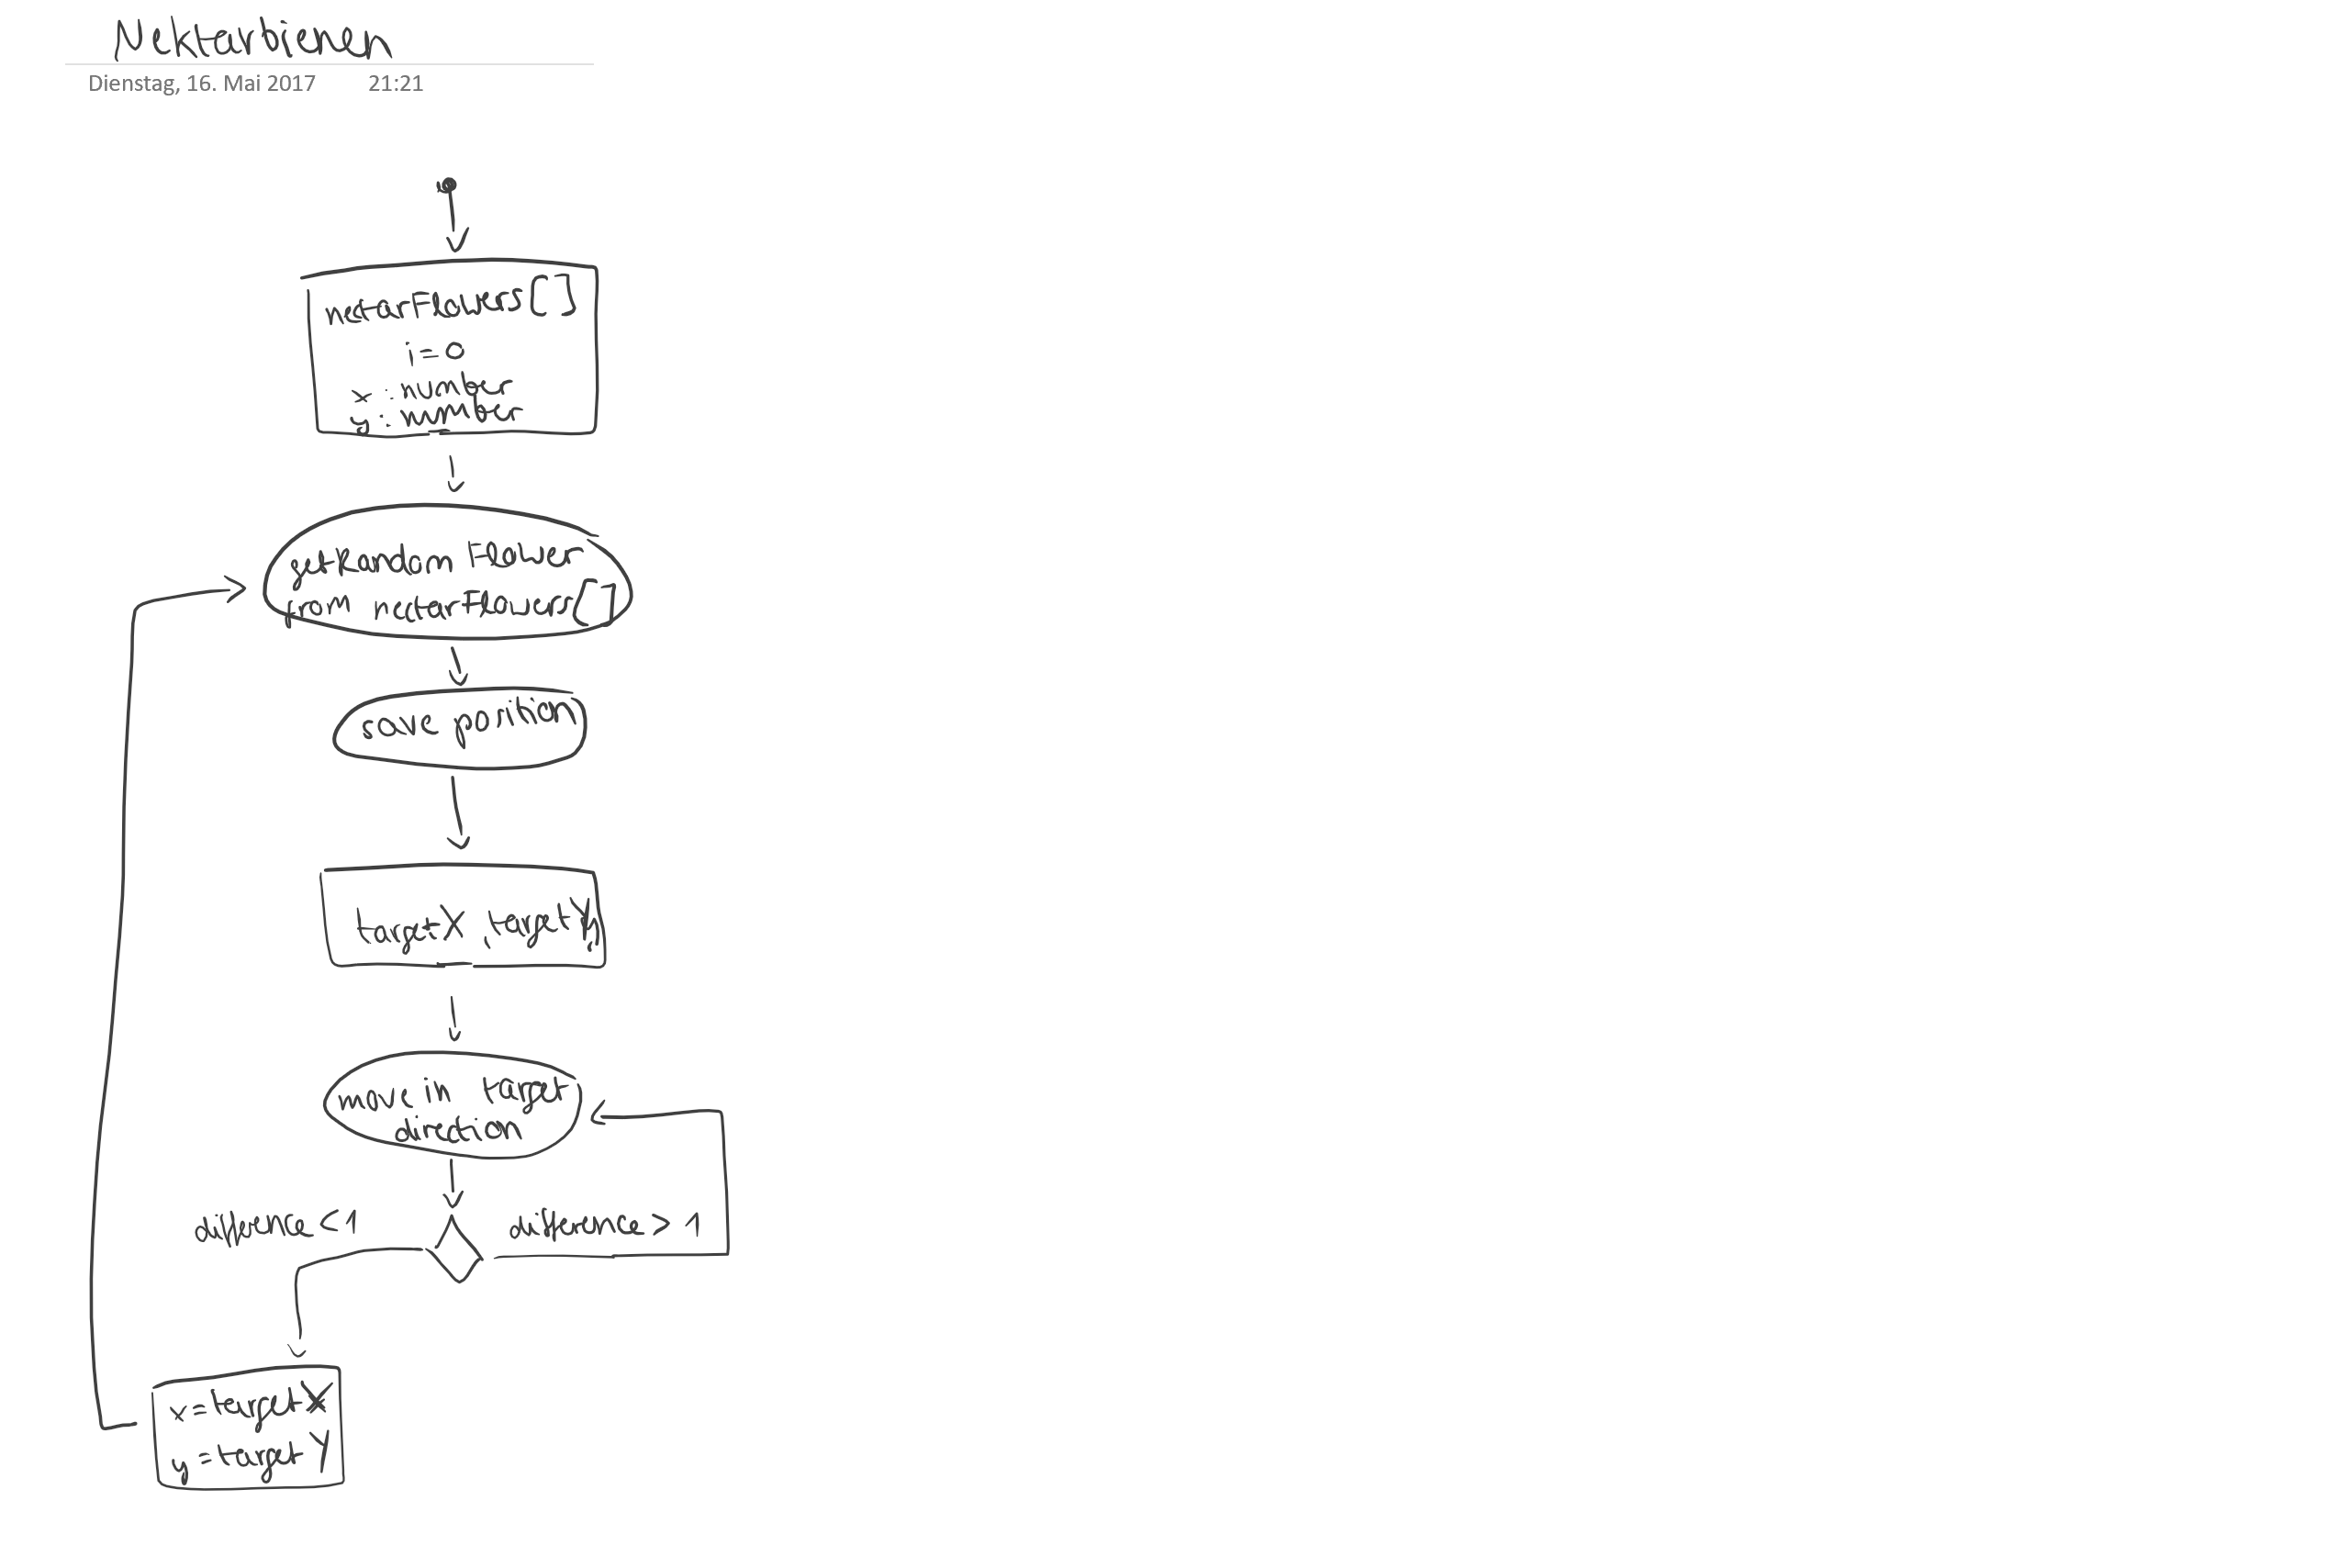 Nektartienen
Dienstag, 16. Mai 2017 21:21
nectarFlowers[]
i=0
x : number
y : number
getRandom Flower
from nectarFlowers[]
save position
targetX, targetY,
move in target
direction
difference < 1
difference > 1
x = targetX
y = targetY